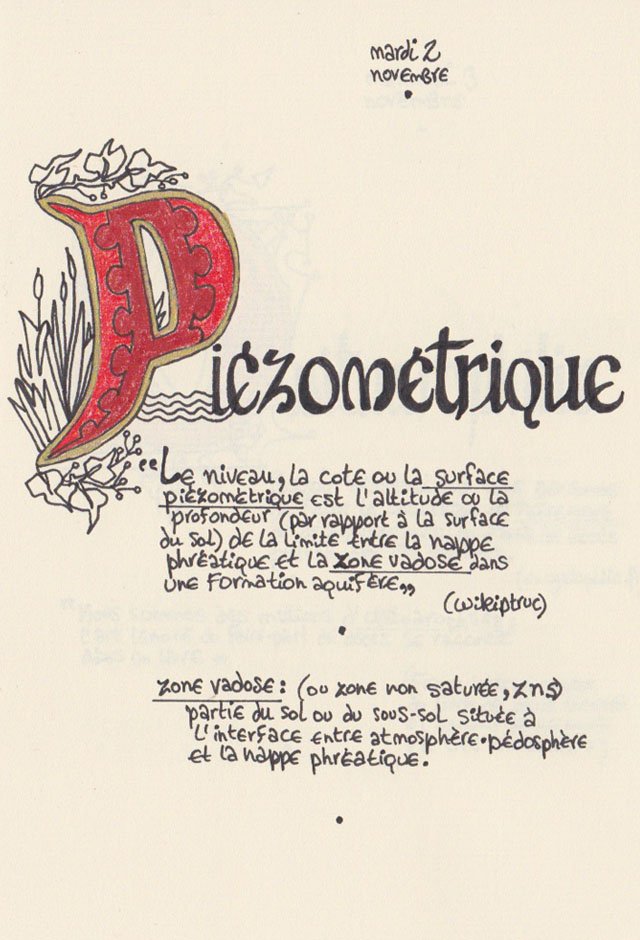 mardi 2
novembre
Piézométrique
"Le niveau, la cote ou la surface
piézométrique est l'altitude ou la
profondeur (par rapport à la surface
du sol) de la limite entre la nappe
phréatique et la zone vadose dans
une formation aquifère"
(wikiptruc)
zone vadose : (ou zone non saturée, zns)
partie du sol ou du sous-sol située à
l'interface entre atmosphère•pédosphère
et la nappe phréatique.